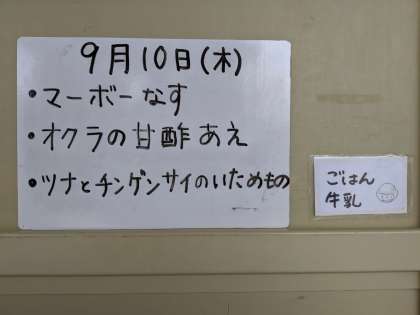 9月10日(木)
・マーボーなす
・オクラの甘酢あえ
・ツナとチンゲンサイのいためもの
ごはん
牛乳